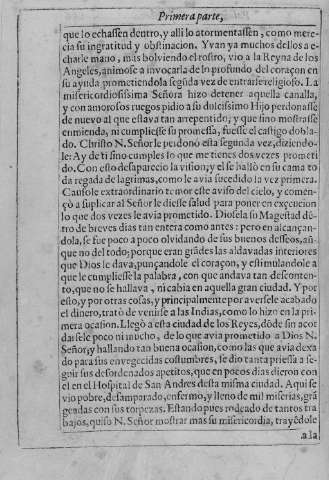 Primera parte,
que lo echassen dentro, y alli lo atormentassen, como mere-
cia su ingratitud y obstinacion. Y van ya muchos dellos a e-
charle mano, mas bolviendo el rostro, vio a la Reyna de los
Angeles, animose a invocarla de lo profundo del coraçon en
su ayuda prometiendola segũda vez de entrarse religioso. La
misericordiosissima Señora hizo detener aquella canalla,
y con amorosos ruegos pidio a su dulcissimo Hijo perdonasse
de nuevo al que estava tan arrepentido; y que sino mostrasse
enmienda, ni cumpliesse su promessa, fuesse el castigo dobla-
do. Christo N. Señor le perdonò esta segunda vez, diziendo-
le: Ay de ti sino cumples lo que me tienes dos vezes prometi
do. Con esto desaparecio la vision; y el se hallò en su cama to
da regada de lagrimas, como le avia sucedido la vez primera.
Causole extraordinario temor este aviso del cielo, y comen-
çò a suplicar al Señor le diesse salud para poner en execucion
lo que dos vezes le avia prometido. Diosela su Magestad dẽ-
tro de breves dias tan entera como antes: pero en alcançan-
dola, se fue poco a poco olvidando de sus buenos desseos, aũ-
que no del todo; porque eran grãdes las aldavadas interiores
que Dios le dava, punçandole el coraçon, y estimulandole a
que le cumpliesse la palabra, con que andava tan desconten-
to, que no se hallava, ni cabia en aquella gran ciudad. Y por
esto, y por otras cosas, y principalmente por aversele acabado
el dinero, tratò de venirse a las Indias, como lo hizo en la pri-
mera ocasion. Llegò a esta ciudad de los Reyes, dõde sin acor
darsele poco ni mucho, de lo que avia prometido a Dios N.
Señor, y hallando tan buena ocasion, como las que avia dexa
do para sus envegecidas costumbres, se dio tanta priessa a se-
guir sus desordenados apetitos, que en pocos dias dieron con
el en el Hospital de San Andres desta misma ciudad. Aqui se
vio pobre, desamparado, enfermo, y lleno de mil miserias, grã
geadas con sus torpezas. Estando pues rodeado de tantos tra
bajos, quiso N. Señor mostrar mas su misericordia, trayẽdole
a la